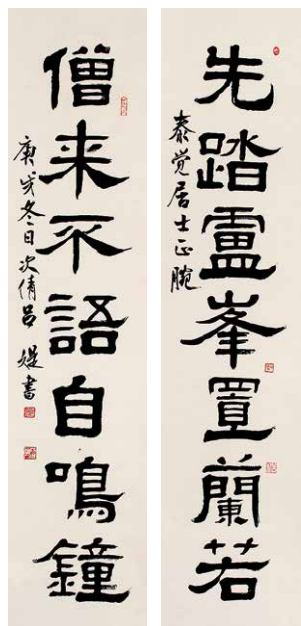 先踏盧峯置蘭若
泰觉居士正腕
僧来不語自鳴鐘
庚戌冬日次倩吕媞書